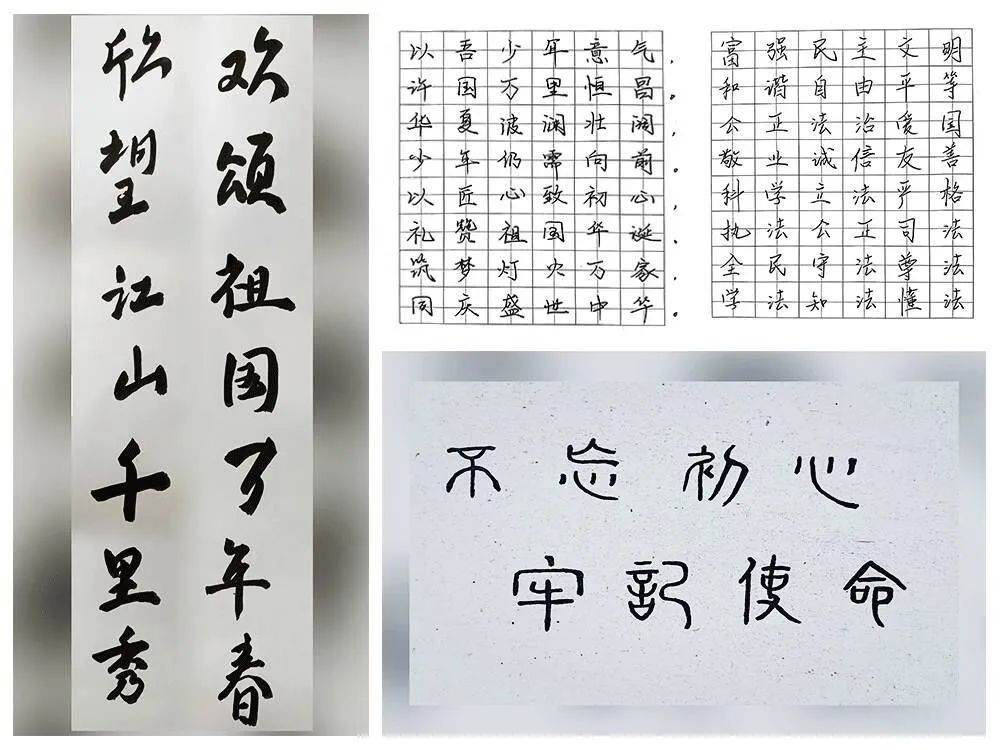 欣望江山千里秀
欢颂祖国万年春
以吾少年意气，
许国万里恒昌。
华夏波澜壮阔，
少年仍需向前。
以匠心致初心，
礼赞祖国华诞。
筑梦灯火万家，
同庆盛世中华。
富强民主文明
和谐自由平等
公正法治爱国
敬业诚信友善
科学立法严格
执法公正司法
全民守法尊法
学法知法懂法
不忘初心
牢記使命